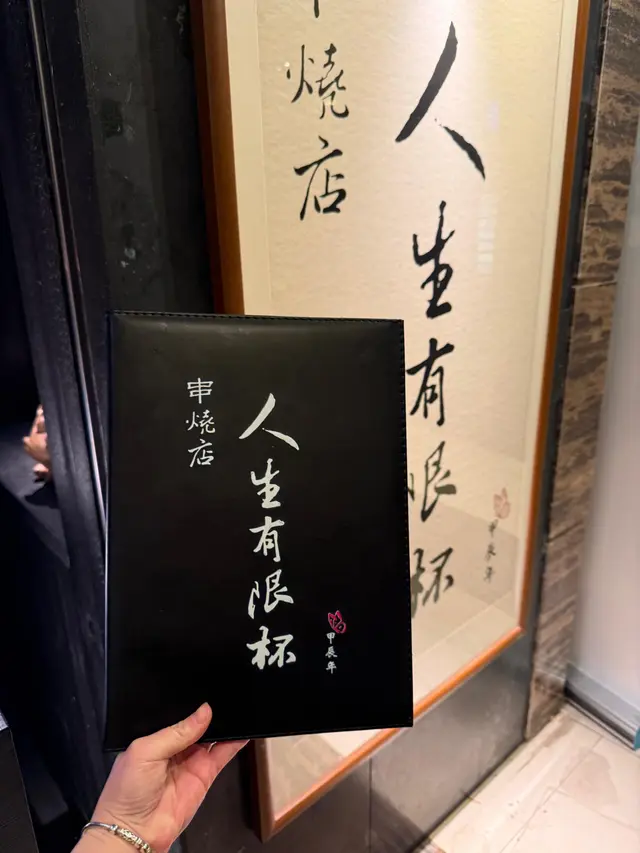 人生有限杯
串燒店
甲辰年
人生有限杯
串燒店
甲辰年